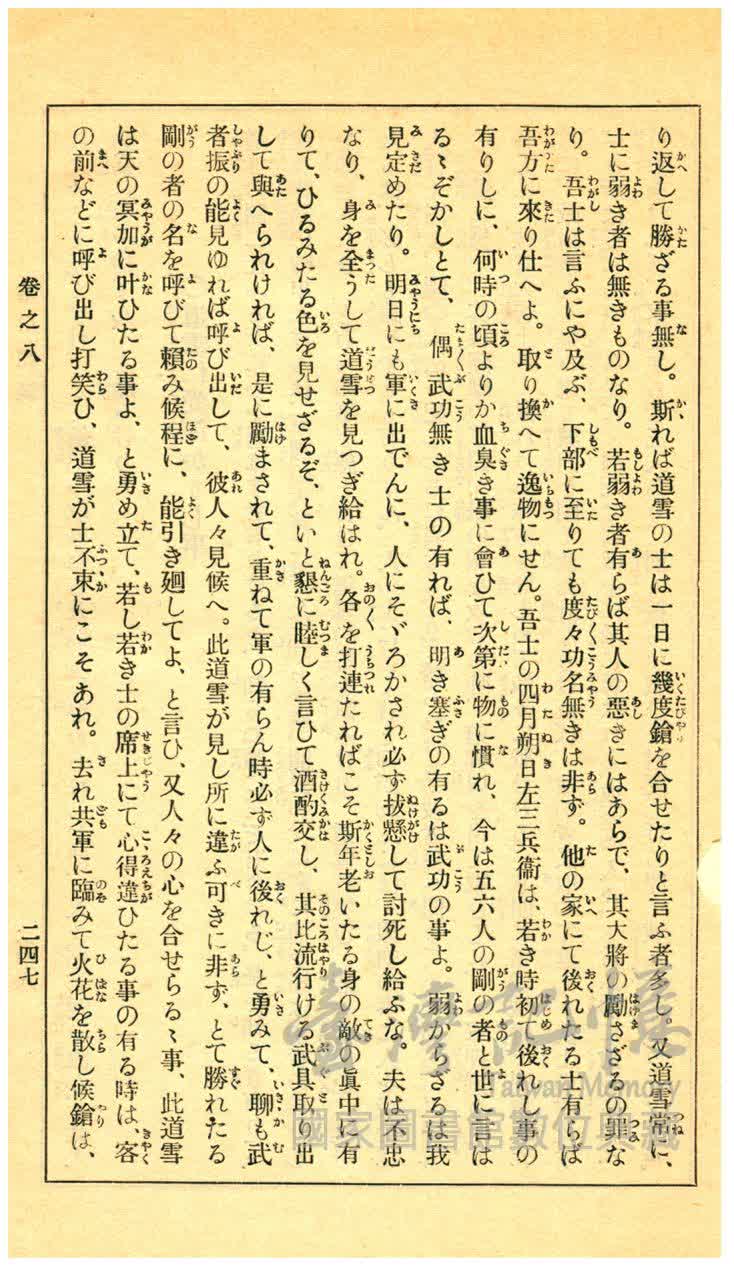 り返して勝ざる事無し。斯れば道雪の士は一日に幾度鎗を合せたりと言ふ者多し。又道雪常に、
士に弱き者は無きものなり。若弱き者有らば其人の悪きにはあらで、其大將の勵さざるの罪な
り。吾士は言ふにや及ぶ、下部に至りても度々功名無きは非ず。他の家にて後れたる士有らば
吾方に來り仕へよ。取り換へて逸物にせん。吾士の四月朔日左三兵衞は、若き時初て後れし事の
有りしに、何時の頃よりか血臭き事に會ひて次第に物に慣れ、今は五六人の剛の者と世に言は
るゝぞかしとて、偶武功無き士の有れば、明き塞ぎの有るは武功の事よ。弱からざるは我
見定めたり。明日にも軍に出でんに、人にそゞろかされ必ず拔懸して討死し給ふな。夫は不忠
なり、身を全うして道雪を見つぎ給はれ。各を打連たればこそ斯年老いたる身の敵の眞中に有
りて、ひるみたる色を見せざるぞ、といと懇に睦しく言ひて酒酌交し、其比流行ける武具取り出
して與へられければ、是に勵まされて、重ねて軍の有らん時必ず人に後れじ、と勇みて、聊も武
者振の能見ゆれば呼び出して、彼人々見候へ。此道雪が見し所に違ふ可きに非ず、とて勝れたる
剛の者の名を呼びて頼み候程に、能引き廻してよ、と言ひ、又人々の心を合せらるゝ事、此道雪
は天の冥加に叶ひたる事よ、と勇め立て、若し若き士の席上にて心得違ひたる事の有る時は、客
の前などに呼び出し打笑ひ、道雪が士不束にこそあれ。去れ共軍に臨みて火花を散し候鎗は、
卷之八
二四七
臺灣記憶
Taiwan Memory
國家圖書館數位典藏